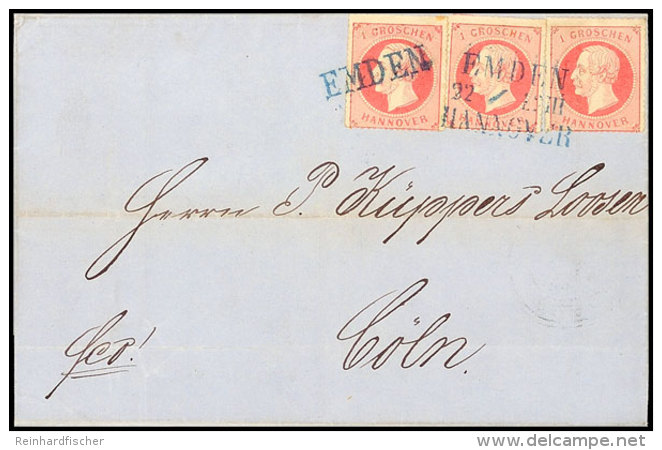 1 GROSCHEN 1 GROSCHEN 1 GROSCHEN
EMDEN EMDEN
22
HANNOVER HANNOVER HANNOVER
HANNOVER
Herrn P. Küppers Loosen
Cöln.
fco!
Reinhardfischer
delcampe.net